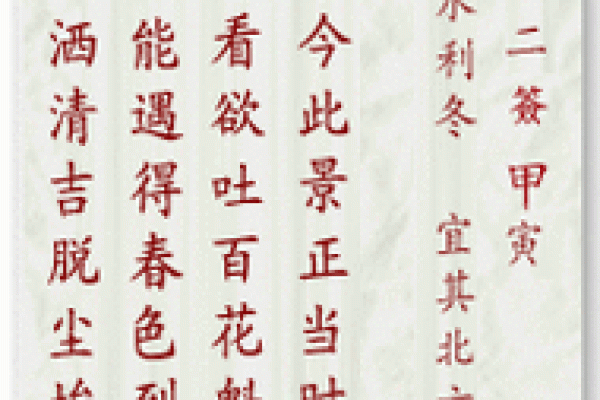 二签甲寅
水利冬 宜其北
今此景正当
看欲吐百花
能遇得春色
洒清吉脱尘